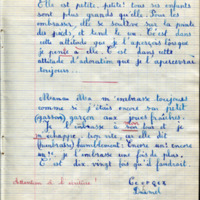 Elle est petite, petite! tous ses enfants
sont plus grands qu'elle. Pour les
embrasser elle se soulève sur la pointe
des pieds, et tend le cou. C'est dans
cette attitude que je l'aperçois lorsque
je pense à elle. C'est dans cette
attitude d'adoration que je l'apercevrai
toujours...
Maman m'embrasse toujours
comme si j'étais encore son petit
garçon aux joues fraîches.
Je l'embrasse à mon tour et je
m'échappe: trop vite, car elle dit
humblement: Encore un! encore
un! je l'embrasse une fois de plus.
C'est dix, vingt fois qu'il faudrait
Attention à l'écriture
Georges
Duhamel